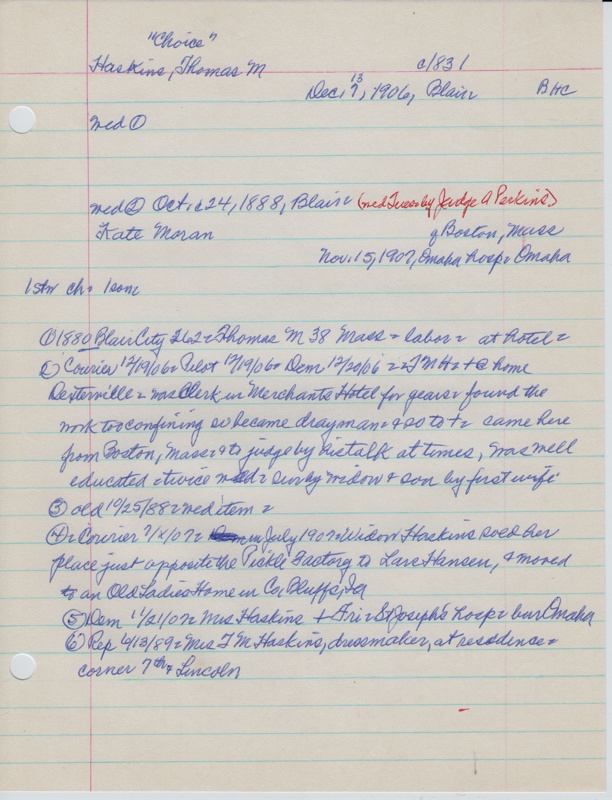 "Choice"
Haskins, Thomas M c/831
Dec. 13 7, 1906, Blair BHC
wed ①
wed ② Oct. 24, 1888, Blair (wed Tues by Judge A Perkins)
Kate Moran of Boston, Mass
Nov. 15, 1907, Omaha hosp Omaha
1st w ch = 1 son
① 1880 Blair City 262 = Thomas M 38 Mass = labor = at hotel =
② Courier 12/19/06 = Pilot 12/19/06 = Dem 12/20/06 = TMH + @ home
Dexterville = was Clerk in Merchants Hotel for years = found the
work too confining so became drayman = & so to + = came here
from Boston, Mass = & to judge by his talk at times, was well
educated = twice wed = surv by widow & son by first wife
③ old 10/25/88 = wed item =
④ = Courier /07 = in July 1907 = Widow Haskins sold her
place just opposite the Pickle Factory to Lars Hansen, & moved
to an Old Ladies Home in Co. Bluffs, Ia
⑤ Dem 11/21/07 = Mrs Haskins + Fri = St Joseph's hosp = bur Omaha
⑥ Rep 4/13/89 = Mrs T M Haskins, dressmaker, at residence =
corner 7th & Lincoln